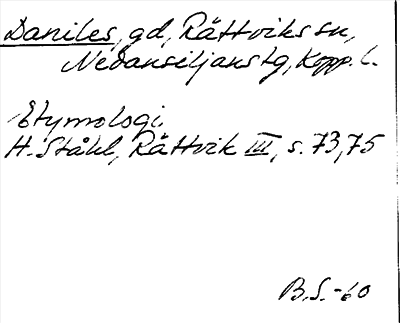 Daniles, gd, Rättviks sn,
Nedansiljans tg, Kopp. l.
Etymologi.
H. Ståhl, Rättvik III, s. 73, 75
B.S. -60